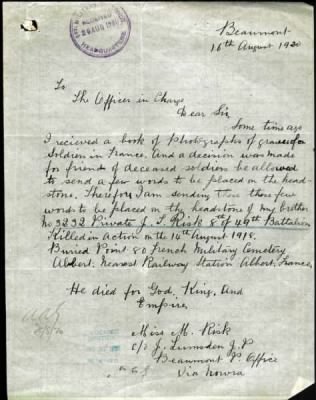 RECEIVED
20 AUG 1920
HEADQUARTERS
Beaumont
16th August 1920
To
The Officer in Charge
Dear Sir
Some time ago
I recieved a book of photographs of graves of
Soldiers in France. And a decision was made
for friend of deceased soldiers be allowed
to send a few words to be placed on the head-
stone. Therefore I am sending these few
words to be placed on the headstone of my brother
No 3232 Private J. L. Risk 8th of 49th Battalion
Killed in Action on the 14th August 1918.
Buried Point 80 French Military Cemetery
Albert. Nearest Railway Station Albert, France
He died for God, King, And
Empire,
Miss M. Risk
c/o J. Lumsden J.P
Beaumont P. Office
Via Nowra